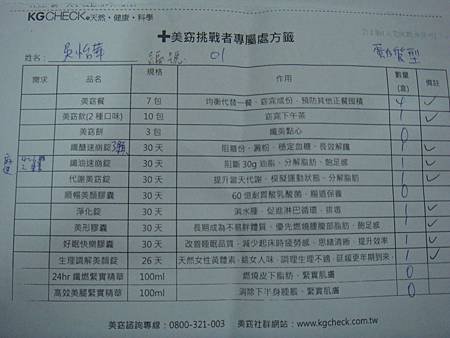 KGCHECK 天然・健康・科學
✚美窈挑戰者專屬處方籤
姓名： 吳怡華 編號 01
需求 品名 規格 作用 數量(盒) 備註
美窈餐 7 包 均衡代替一餐、窈窕成份、預防其他正餐囤積 4 ✓
美窈飲(2 種口味) 10 包 窈窕下午茶 1 ✓
美窈餅 3 包 纖美點心 0
纖醣速崩錠 3顆 30 天 阻糖份、澱粉、穩定血糖、長效解饞 1 ✓
纖油速崩錠 30 天 阻斷 30g 油脂、分解脂肪、飽足感 1 ✓
代謝美窈錠 30 天 提升當天代謝、模擬運動狀態、分解脂肪 1 ✓
順暢美顏膠囊 30 天 60 億耐胃酸乳酸菌、腸道保養 0
淨化錠 30 天 消水腫、促進淋巴循環、排毒 1 ✓
美形膠囊 30 天 長期成為不易胖體質、優先燃燒腰腹部脂肪、飽足感 1 ✓
好眠快樂膠囊 30 天 改善睡眠品質、減少起床時疲勞感、思緒清晰、提升效率 1 ✓
生理調解美顏錠 26 天 天然女性黃體素、給女人味、調理生理不適、延緩更年期到來 1 ✓
24hr 纖燃緊實精華 100ml 燃燒皮下脂肪、緊實肌膚 0
高效美腿緊實精華 100ml 消除下半身腫脹、緊實肌膚 0
美窈諮詢專線：0800-321-003 美窈社群網站：www.kgcheck.com.tw